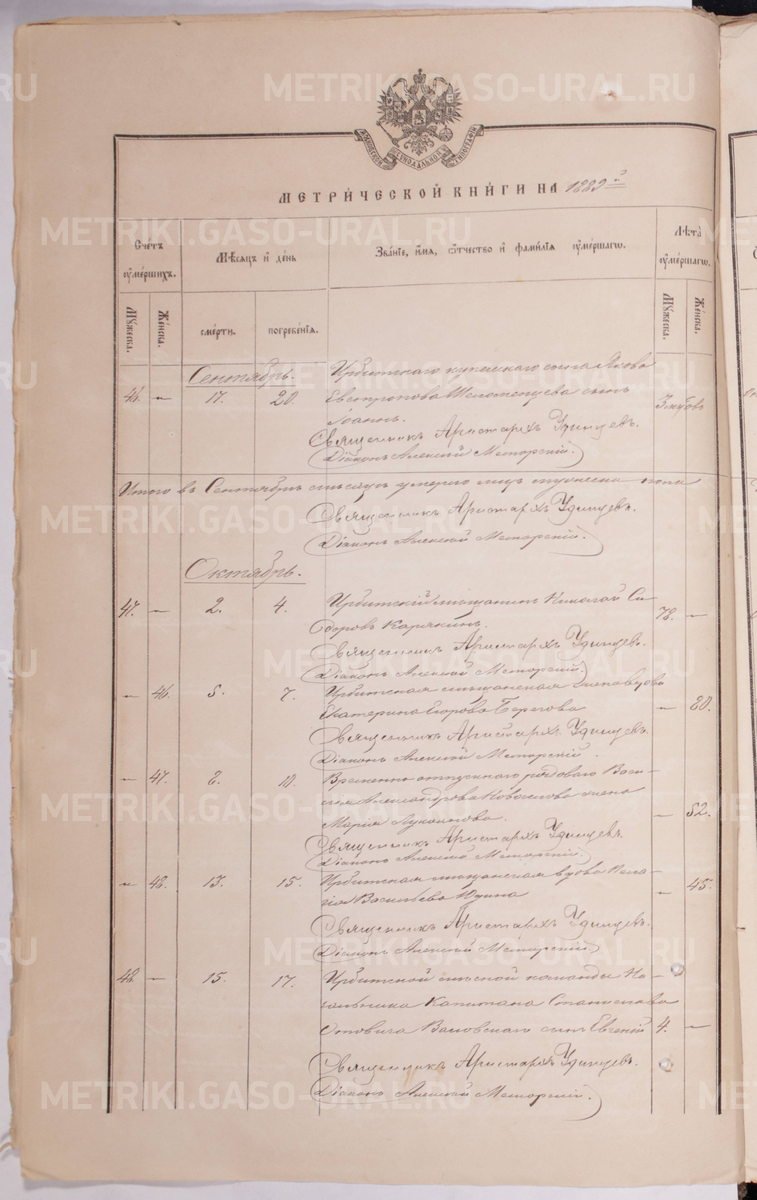 МЕТРИЧЕСКОЙ КНИГИ НА 1889 г.
Счетъ умершихъ.
Мѣсяцъ и день
Званіе, имя, отчество и фамилія умершаго.
Лѣта умершаго.
Мужеска.
Женска.
смерти.
погребенія.
Мужеска.
Женска.
Сентябрь.
Ирбитскаго купеческаго сына Якова
46. — 17. 20. сынъ
Іоаннъ.
Священникъ Аристархъ Удинцевъ.
Діаконъ Алексѣй Меморскій.
Итого въ Сентябрѣ мѣсяцѣ умерло лицъ мужеска пола
Священникъ Аристархъ Удинцевъ.
Діаконъ Алексѣй Меморскій.
Октябрь.
47. — 2. 4. Ирбитскій мѣщанинъ Николай Си-
доровъ Карякинъ. 78. —
Священникъ Аристархъ Удинцевъ.
Діаконъ Алексѣй Меморскій.
— 46. 5. 7. Ирбитская мѣщанская вдова
Екатерина Егорова Берегова — 80.
Священникъ Аристархъ Удинцевъ.
Діаконъ Алексѣй Меморскій.
— 47. 8. 10. Временно отпускнаго рядоваго Васи-
лія Александрова жена
Марія Лукоянова. — 52.
Священникъ Аристархъ Удинцевъ.
Діаконъ Алексѣй Меморскій.
— 48. 13. 15. Ирбитская мѣщанская вдова Пела-
гія Васильева — 45.
Священникъ Аристархъ Удинцевъ.
Діаконъ Алексѣй Меморскій.
48. — 15. 17. Ирбитской мѣстной команды На-
чальника Капитана Станислава
сынъ Евгеній 4. —
Священникъ Аристархъ Удинцевъ.
Діаконъ Алексѣй Меморскій.
METRIKI.GASO-URAL.RU